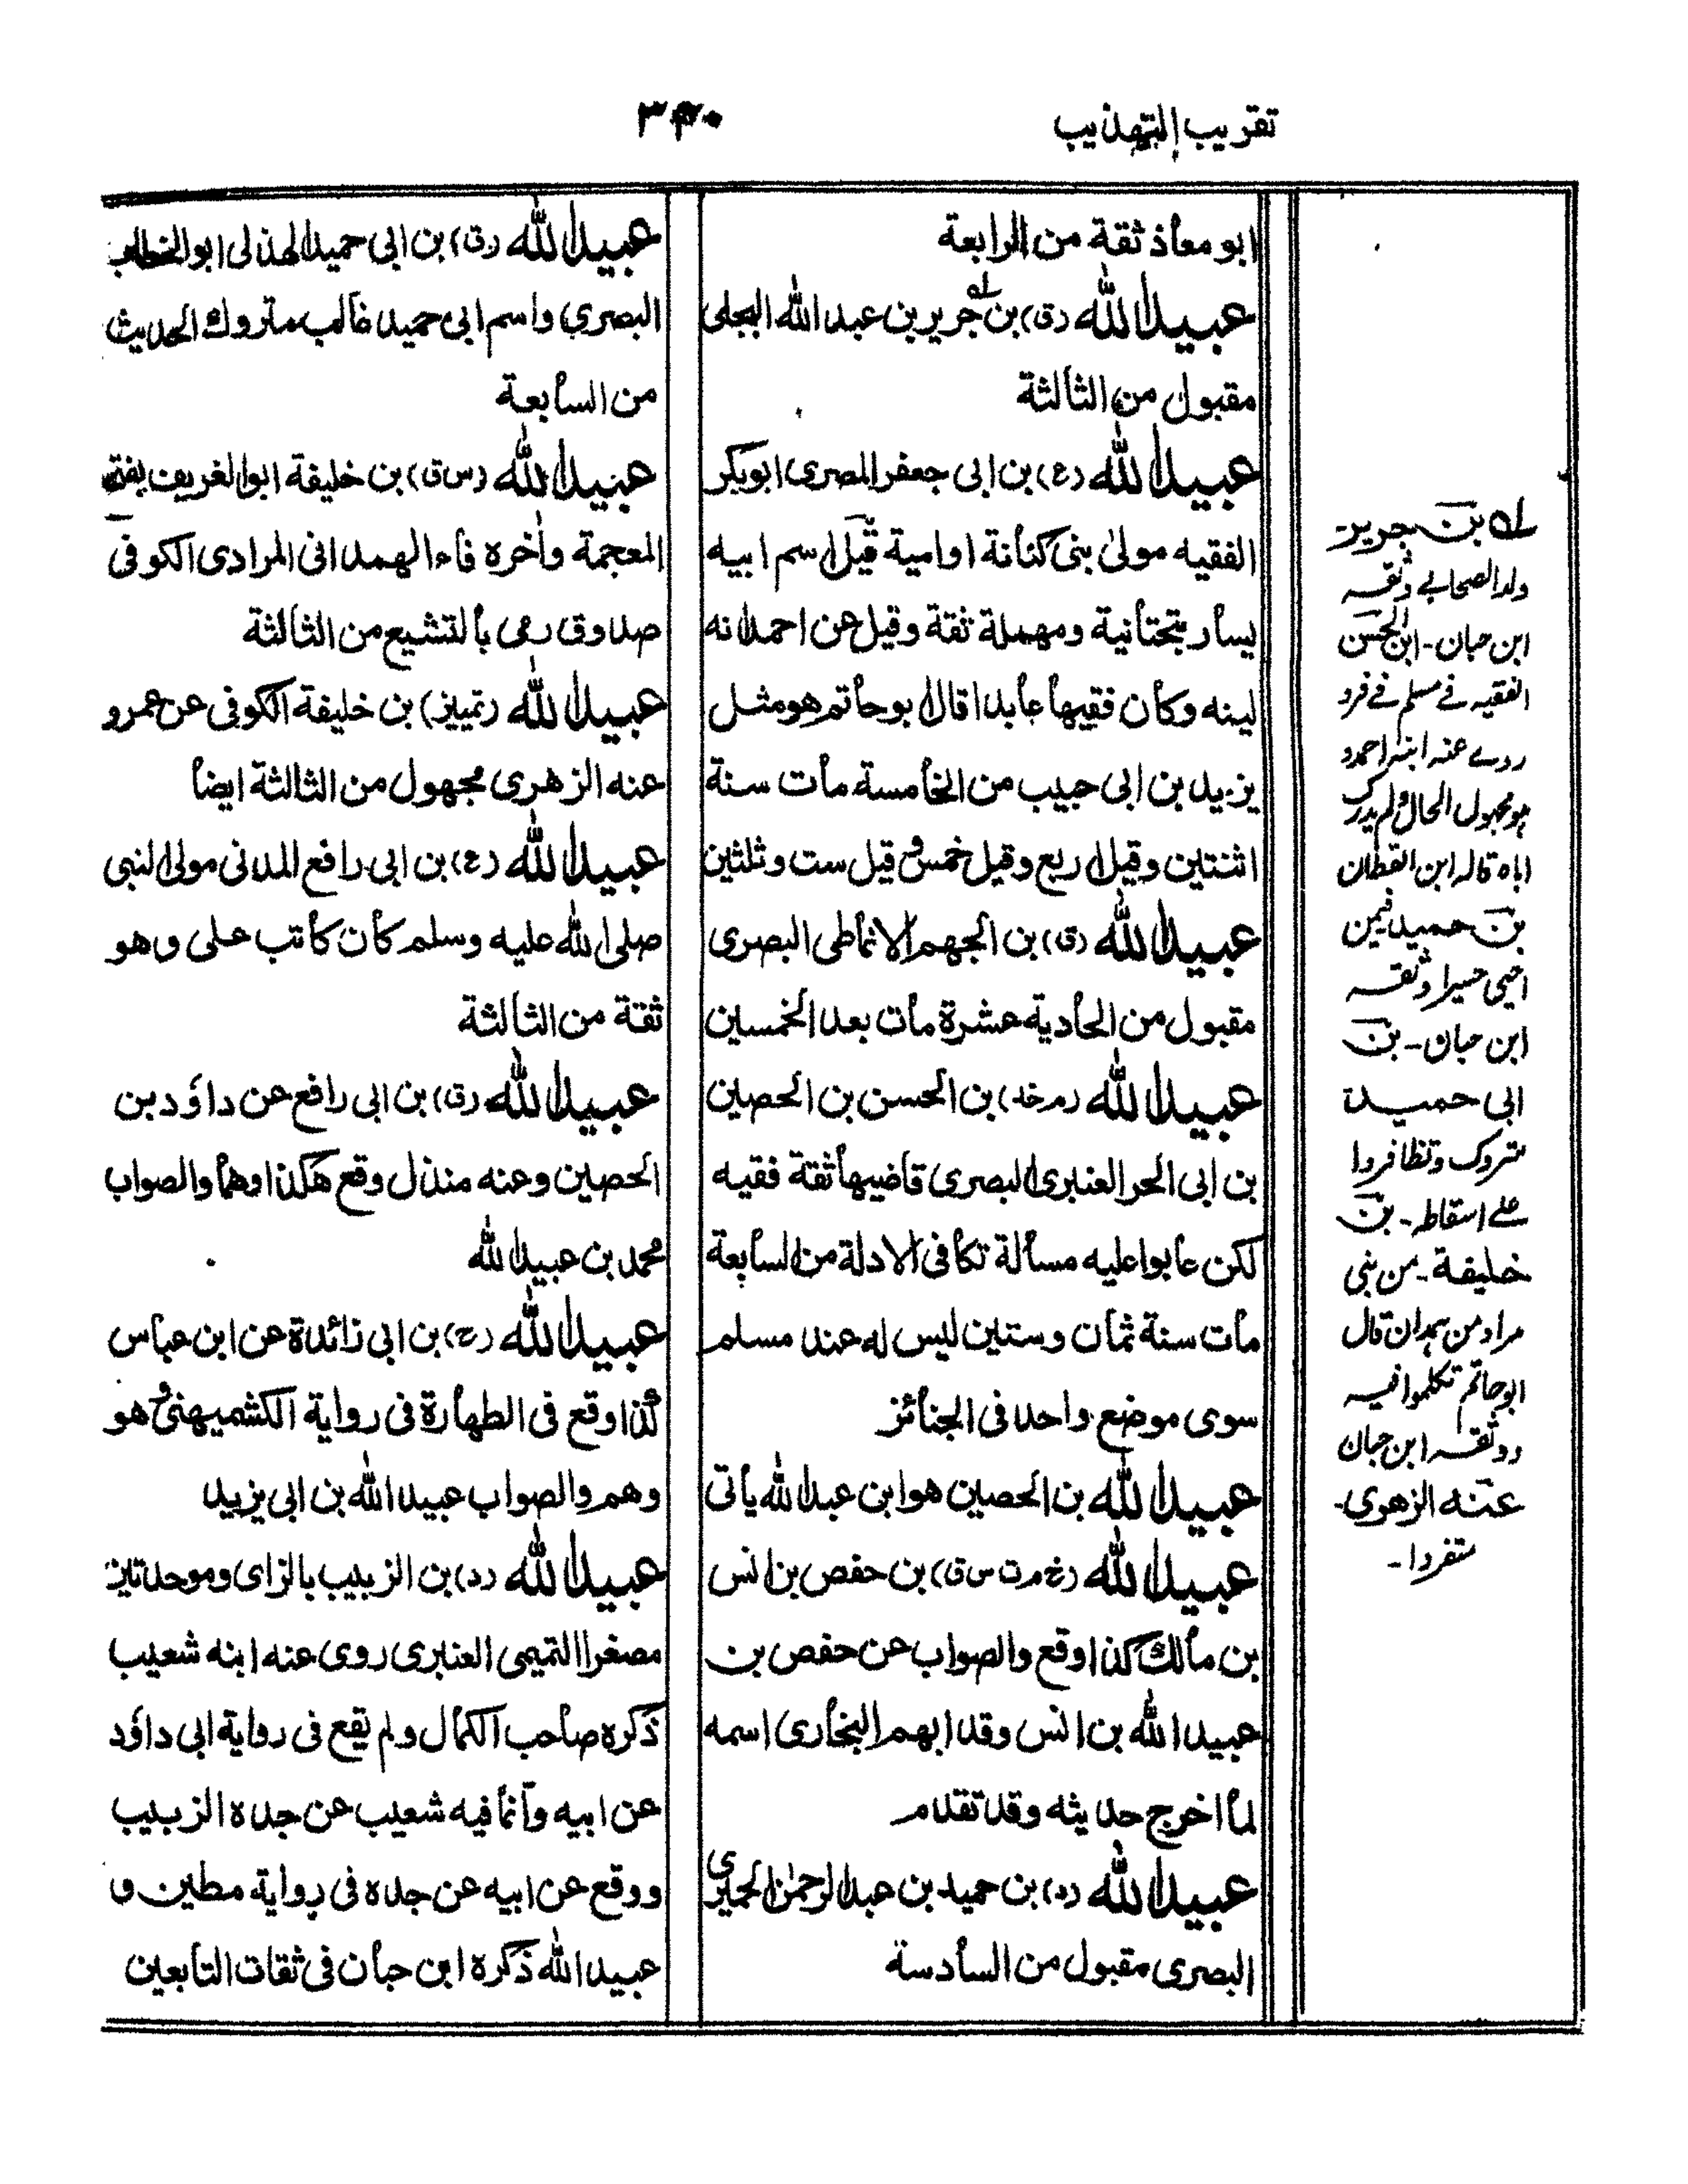 تقريب التهذيب
٣٤٠
ابو معاذ ثقة من الرابعة
عبيد الله (ق) بن جرير بن عبد الله البجلى
مقبول من الثالثة
عبيد الله (ع) بن ابى جعفر المصرى ابوبكر
الفقيه مولى بنى كنانة او امية قيل اسم ابيه
يسار بتحتانية ومهملة ثقة وقيل عن احمد انه
لينه وكان فقيها عابدا قال ابو حاتم هو مثل
يزيد بن ابى حبيب من الخامسة مات سنة
اثنتين وقيل اربع وقيل خمس وقيل ست وثلثين
عبيد الله (ق) بن الجهم الانماطى البصرى
مقبول من الحادية عشرة مات بعد الخمسين
عبيد الله (م خد) بن الحسن بن الحصين
بن ابى الحر العنبرى البصرى قاضيها ثقة فقيه
لكن عابوا عليه مسألة تكافى الادلة من السابعة
مات سنة ثمان وستين ليس له عند مسلم
سوى موضع واحد فى الجنائز
عبيد الله بن الحصين هو ابن عبد الله يأتى
عبيد الله (خ م ت س ق) بن حفص بن انس
بن مالك كذا وقع والصواب عن حفص بن
عبيد الله بن انس وقد ابهم البخارى اسمه
لما اخرج حديثه وقد تقدم
عبيد الله (د) بن حميد بن عبد الرحمٰن الحميرى
البصرى مقبول من السادسة
عبيد الله (ق) بن ابى حميد الهذلى ابو الخطاب
البصري واسم ابى حميد غالب متروك الحديث
من السابعة
عبيد الله (س ق) بن خليفة ابو الغريف بفتح
المعجمة وأخره فاء الهمدانى المرادى الكوفى
صدوق رمى بالتشيع من الثالثة
عبيد الله (تمييز) بن خليفة الكوفى عن عمرو
عنه الزهرى مجهول من الثالثة ايضا
عبيد الله (ع) بن ابى رافع المدنى مولى النبى
صلى الله عليه وسلم كان كاتب على وهو
ثقة من الثالثة
عبيد الله (ق) بن ابى رافع عن داؤد بن
الحصين وعنه مندل وقع هكذا وهما والصواب
محمد بن عبيد الله
عبيد الله (خ) بن ابى زائدة عن ابن عباس
كذا وقع فى الطهارة فى رواية الكشميهنى وهو
وهم والصواب عبيد الله بن ابى يزيد
عبيد الله (د) بن الزبيب بالزاى وموحدتين
مصغرا التميمى العنبرى روى عنه ابنه شعيب
ذكره صاحب الكمال ولم يقع فى رواية ابى داؤد
عن ابيه وانما فيه شعيب عن جده الزبيب
ووقع عن ابيه عن جده فى رواية مطين و
عبيد الله ذكره ابن حبان فى ثقات التابعين
له بن جرير-
ولد الصحابے وثقه
ابن حبان- ابن الحسن
الفقيه فے مسلم فے فرد
روے عنه ابنه احمد و
هو مجهول الحال ولم يدرك
اباه قاله ابن القطان
بن حميد فيمن
ابن حبان- بن
ابى حميدة
متروك وتظافروا
علے اسقاطه- بن
خليفة- من بنى
مراد من همدان قال
ابو حاتم تكلموا فيه
ووثقه ابن حبان
عنه الزهرى-
متفردا-